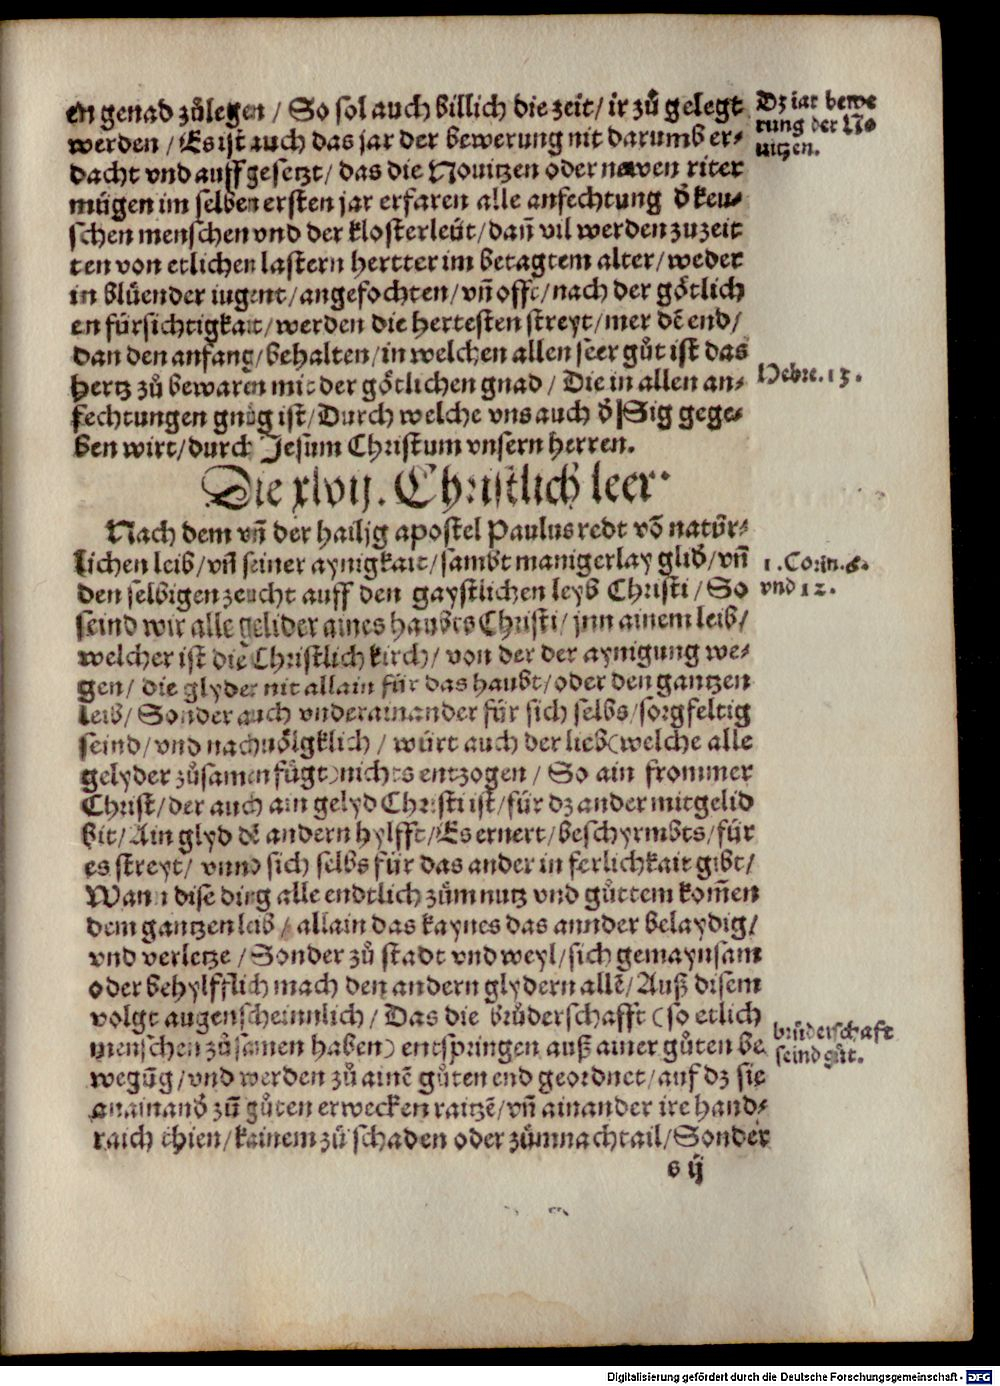 en genad zůlegen / So sol auch billich die zeit / ir zů gelegt
werden / Es ist auch das jar der bewerung nit darumb er⸗
dacht vnd auff gesetzt / das die Nouitzen oder newen riter
mügen im selben ersten jar erfaren alle anfechtung d̕ keu⸗
schen menschen vnd der klosterleüt / dañ vil werden zuzeit
ten von etlichen lastern hertter im betagtem alter / weder
in blüender iugent / angefochten / vñ offt / nach der götlich
en fürsichtigkait / werden die hertesten streyt / mer dē end /
dan den anfang / behalten / in welchen allen seer gůt ist das
hertz zů bewaren mit der götlichen gnad / Die in allen an⸗
fechtungen gnůg ist / Durch welche vns auch d̕ Sig gege⸗
ben wirt / durch Jesum Christum vnsern herren.
Dz iar bewe
rung der No
uitzen.
Hebre. 13.
Die xlvij. Christlich leer.
Nach dem vñ der hailig apostel Paulus redt vō natür⸗
lichen leib / vñ seiner aynigkait / sambt manigerlay glid̕ / vñ
den selbigen zeucht auff den gaystlichen leyb Christi / So
seind wir alle gelider aines haubts Christi / jnn ainem leib /
welcher ist die Christlich kirch / von der der aynigung we⸗
gen / die glyder nit allain für das haubt / oder den gantzen
leib / Sonder auch vnderainander für sich selbs / sorgfeltig
seind / vnd nachuölgklich / würt auch der lieb (welche alle
gelyder zůsamen fügt) nichts entzogen / So ain frommer
Christ / der auch ain gelyd Christi ist / für dz ander mitgelid
bit / Ain glyd dē andern hylfft / Es ernert / beschyrmbts / für
es streyt / vnnd sich selbs für das ander in ferlichkait gibt /
Wann dise ding alle endtlich zům nutz vnd gůttem kom̄en
dem gantzen leib / allain das kaynes das annder belaydig /
vnd verletze / Sonder zů stadt vnd weyl / sich gemaynsam
oder behylfflich mach den andern glydern allē / Auß disem
volgt augenscheinnlich / Das die brůderschafft (so etlich
menschen zůsamen haben) entspringen auß ainer gůten be
wegūg / vnd werden zů ainē gůten end geordnet / auf dz sie
anainand̕ zū gůten erwecken raitzē / vñ ainander ire hand⸗
raich thien / kainem zů schaden oder zům nachtail / Sonder
1. Corin. 6.
vnd 12.
brůderschaft
seind gůt.
ij
Digitalisierung gefördert durch die Deutsche Forschungsgemeinschaft - DFG